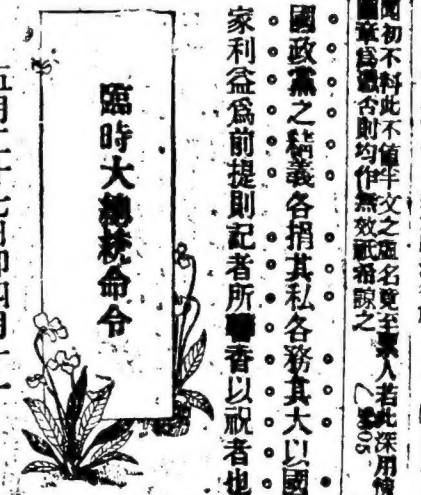 聞初不料此不值半文之虛名竟至累人若此深用愧
圖章爲憑否則均作無效祇希諒之
國政黨之精義各捐其私各務其大以國
家利益爲前提則記者所馨香以祝者也
臨時大總統命令
五月二十九日即四月十二